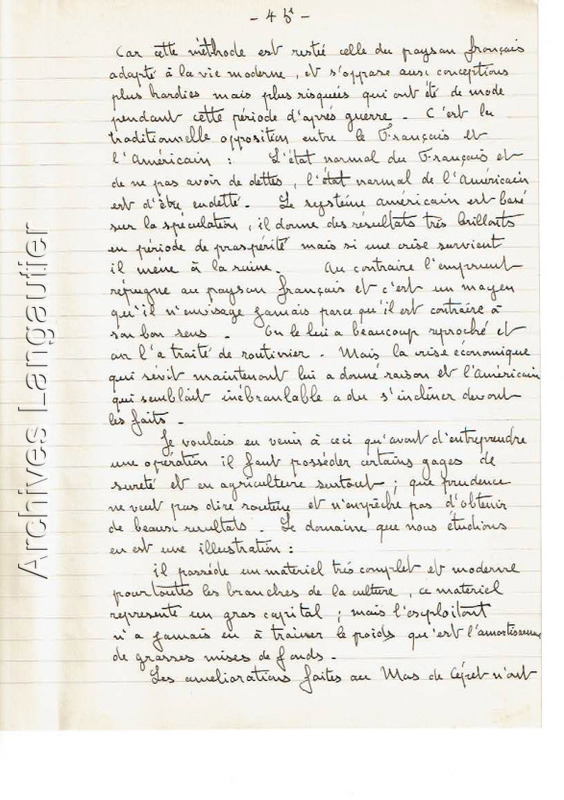 - 45 -
Car cette méthode est restée celle du paysan français
adapté à la vie moderne, et s'oppose aux conceptions
plus hardies mais plus risquées qui ont été de mode
pendant cette période d'après guerre. C'est la
traditionnelle opposition entre le Français et
l'Américain : L'état normal du Français est
de ne pas avoir de dettes, l'état normal de l'Américain
est d'être endetté. Le système américain est basé
sur la spéculation, il donne des résultats très brillants
en période de prospérité mais si une crise survient
il mène à la ruine. Au contraire l'emprunt
répugne au paysan français et c'est un moyen
qu'il n'envisage jamais parce qu'il est contraire à
son bon sens. On le lui a beaucoup reproché et
on l'a traité de routinier. Mais la crise économique
qui sévit maintenant lui a donné raison et l'Américain
qui semblait inébranlable a du s'incliner devant
les faits.
Je voulais en venir à ceci qu'avant d'entreprendre
une opération il faut posséder certains gages de
sureté et en agriculture surtout ; que prudence
ne veut pas dire routine et n'empêche pas d'obtenir
de beaux resultats. Le domaine que nous étudions
en est une illustration :
il possède un matériel très complet et moderne
pour toutes les branches de la culture, ce materiel
represente un gros capital ; mais l'exploitant
n'a jamais eu à trainer le poids qu'est l'amortissement
de grosses mises de fonds.
Les ameliorations faites au Mas de Cépet n'ont
Archives Langautier